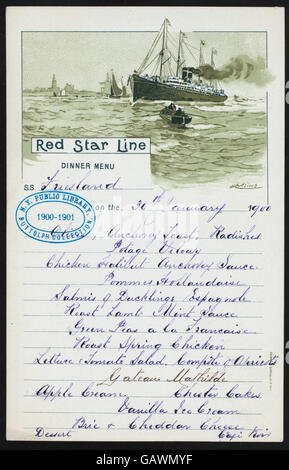 Red Star Line
DINNER MENU
S.S. Friesland
on the 30th January 1900
N.Y. PUBLIC LIBRARY
1900-1901
BUTTOLPH COLLECTION
Anchovy Toast, Radishes
Potage Velour
Chicken Halibut Anchovy Sauce
Pommes Hollandaise
Salmis of Ducklings Espagnole
Roast Lamb Mint Sauce
Green Peas a la Francaise
Roast Spring Chicken
Lettuce & Tomato Salad. Compote of Apricots
Gateau Mathilde
Apple Cream, Chester Cakes
Vanilla Ice Cream
Brie & Cheddar Cheese
Dessert Café Noir
alamy
GAWMYF